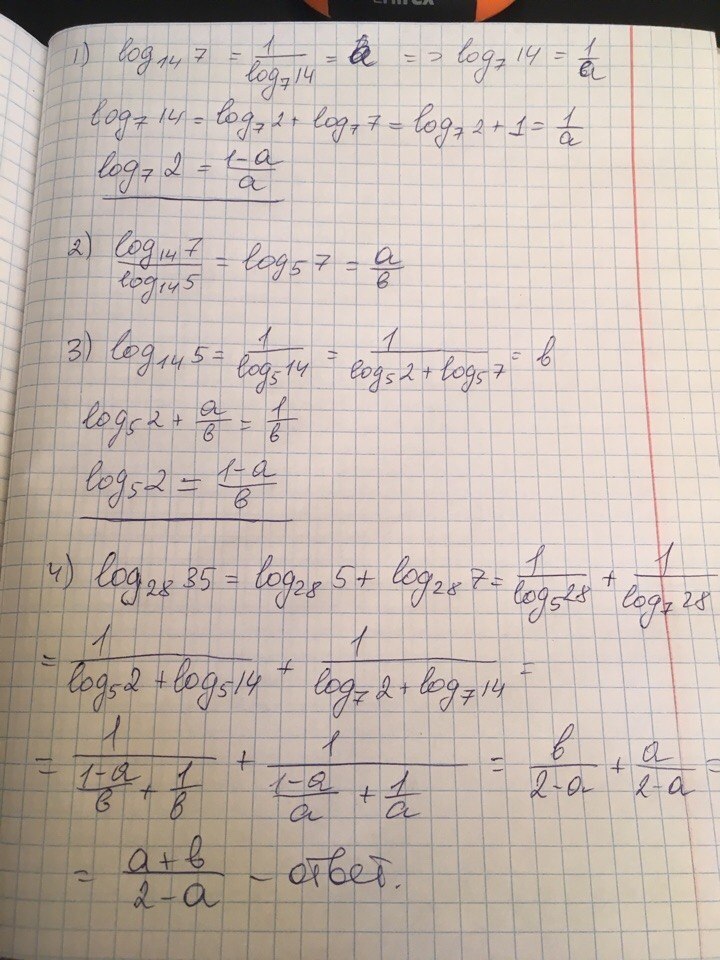 1) log₁₄ 7 = 1/log₇14 = a => log₇ 14 = 1/a
log₇ 14 = log₇ 2 + log₇ 7 = log₇ 2 + 1 = 1/a
log₇ 2 = 1-a/a
2) log₁₄ 7/log₁₄ 5 = log₅ 7 = a/в
3) log₁₄ 5 = 1/log₅ 14 = 1/log₅ 2 + log₅ 7 = в
log₅ 2 + a/в = 1/в
log₅ 2 = 1-a/в
4) log₂₈ 35 = log₂₈ 5 + log₂₈ 7 = 1/log₅ 28 + 1/log₇ 28
= 1/log₅ 2 + log₅ 14 + 1/log₇ 2 + log₇ 14 =
= 1/1-a/в + 1/в + 1/1-a/a + 1/a = в/2-a + a/2-a =
= a+в/2-a - ответ.